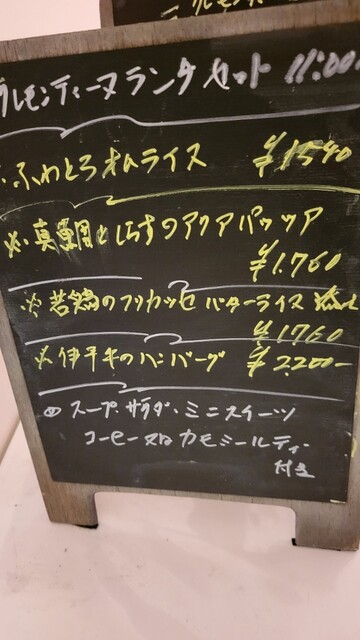 クレモンティーヌランチセット 11:00
・ふわとろオムライス ¥1540
※真鯛としらすのアクアパッツア
¥1.760
※若鶏のフリカッセ バターライス
¥1760
※伊予牛のハンバーグ ¥2.200-
スープ・サラダ・ミニスイーツ
コーヒー又はカモミールティー
付き